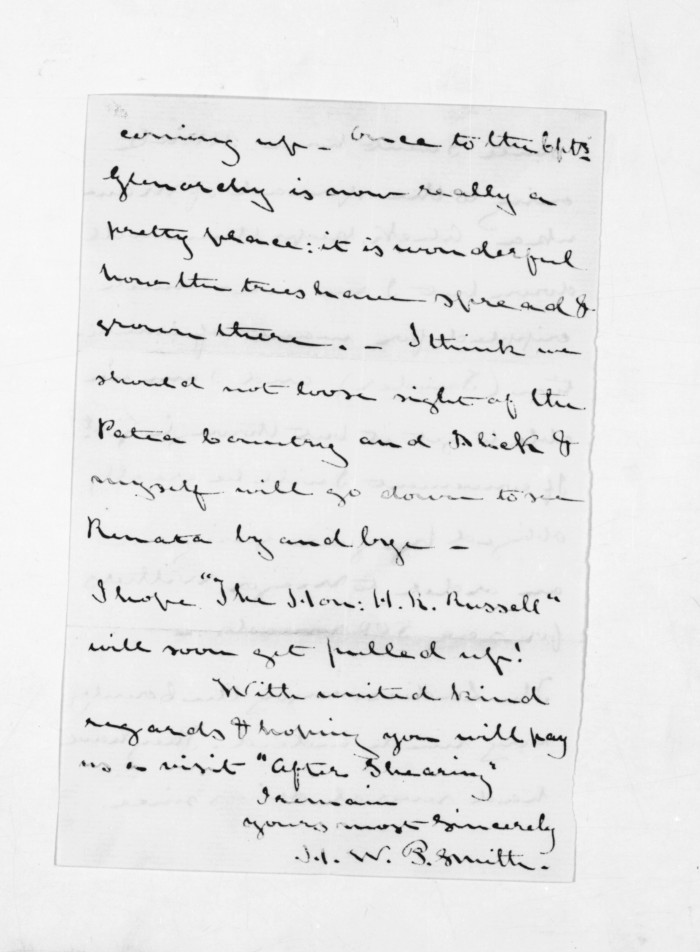 coming up - once to the
Glenorchy is now really a
pretty place: it is wonderful
how the trees have spread &
grown there. - I think we
should not loose sight of the
Patea Country and Slick &
myself will go down to see
Renata by and bye -
I hope "The Hon: H. R. Russell"
will soon get pulled up!
With united kind
regards & hoping you will pay
us a visit "After Shearing"
I remain
yours most sincerely
W. P. Smith.